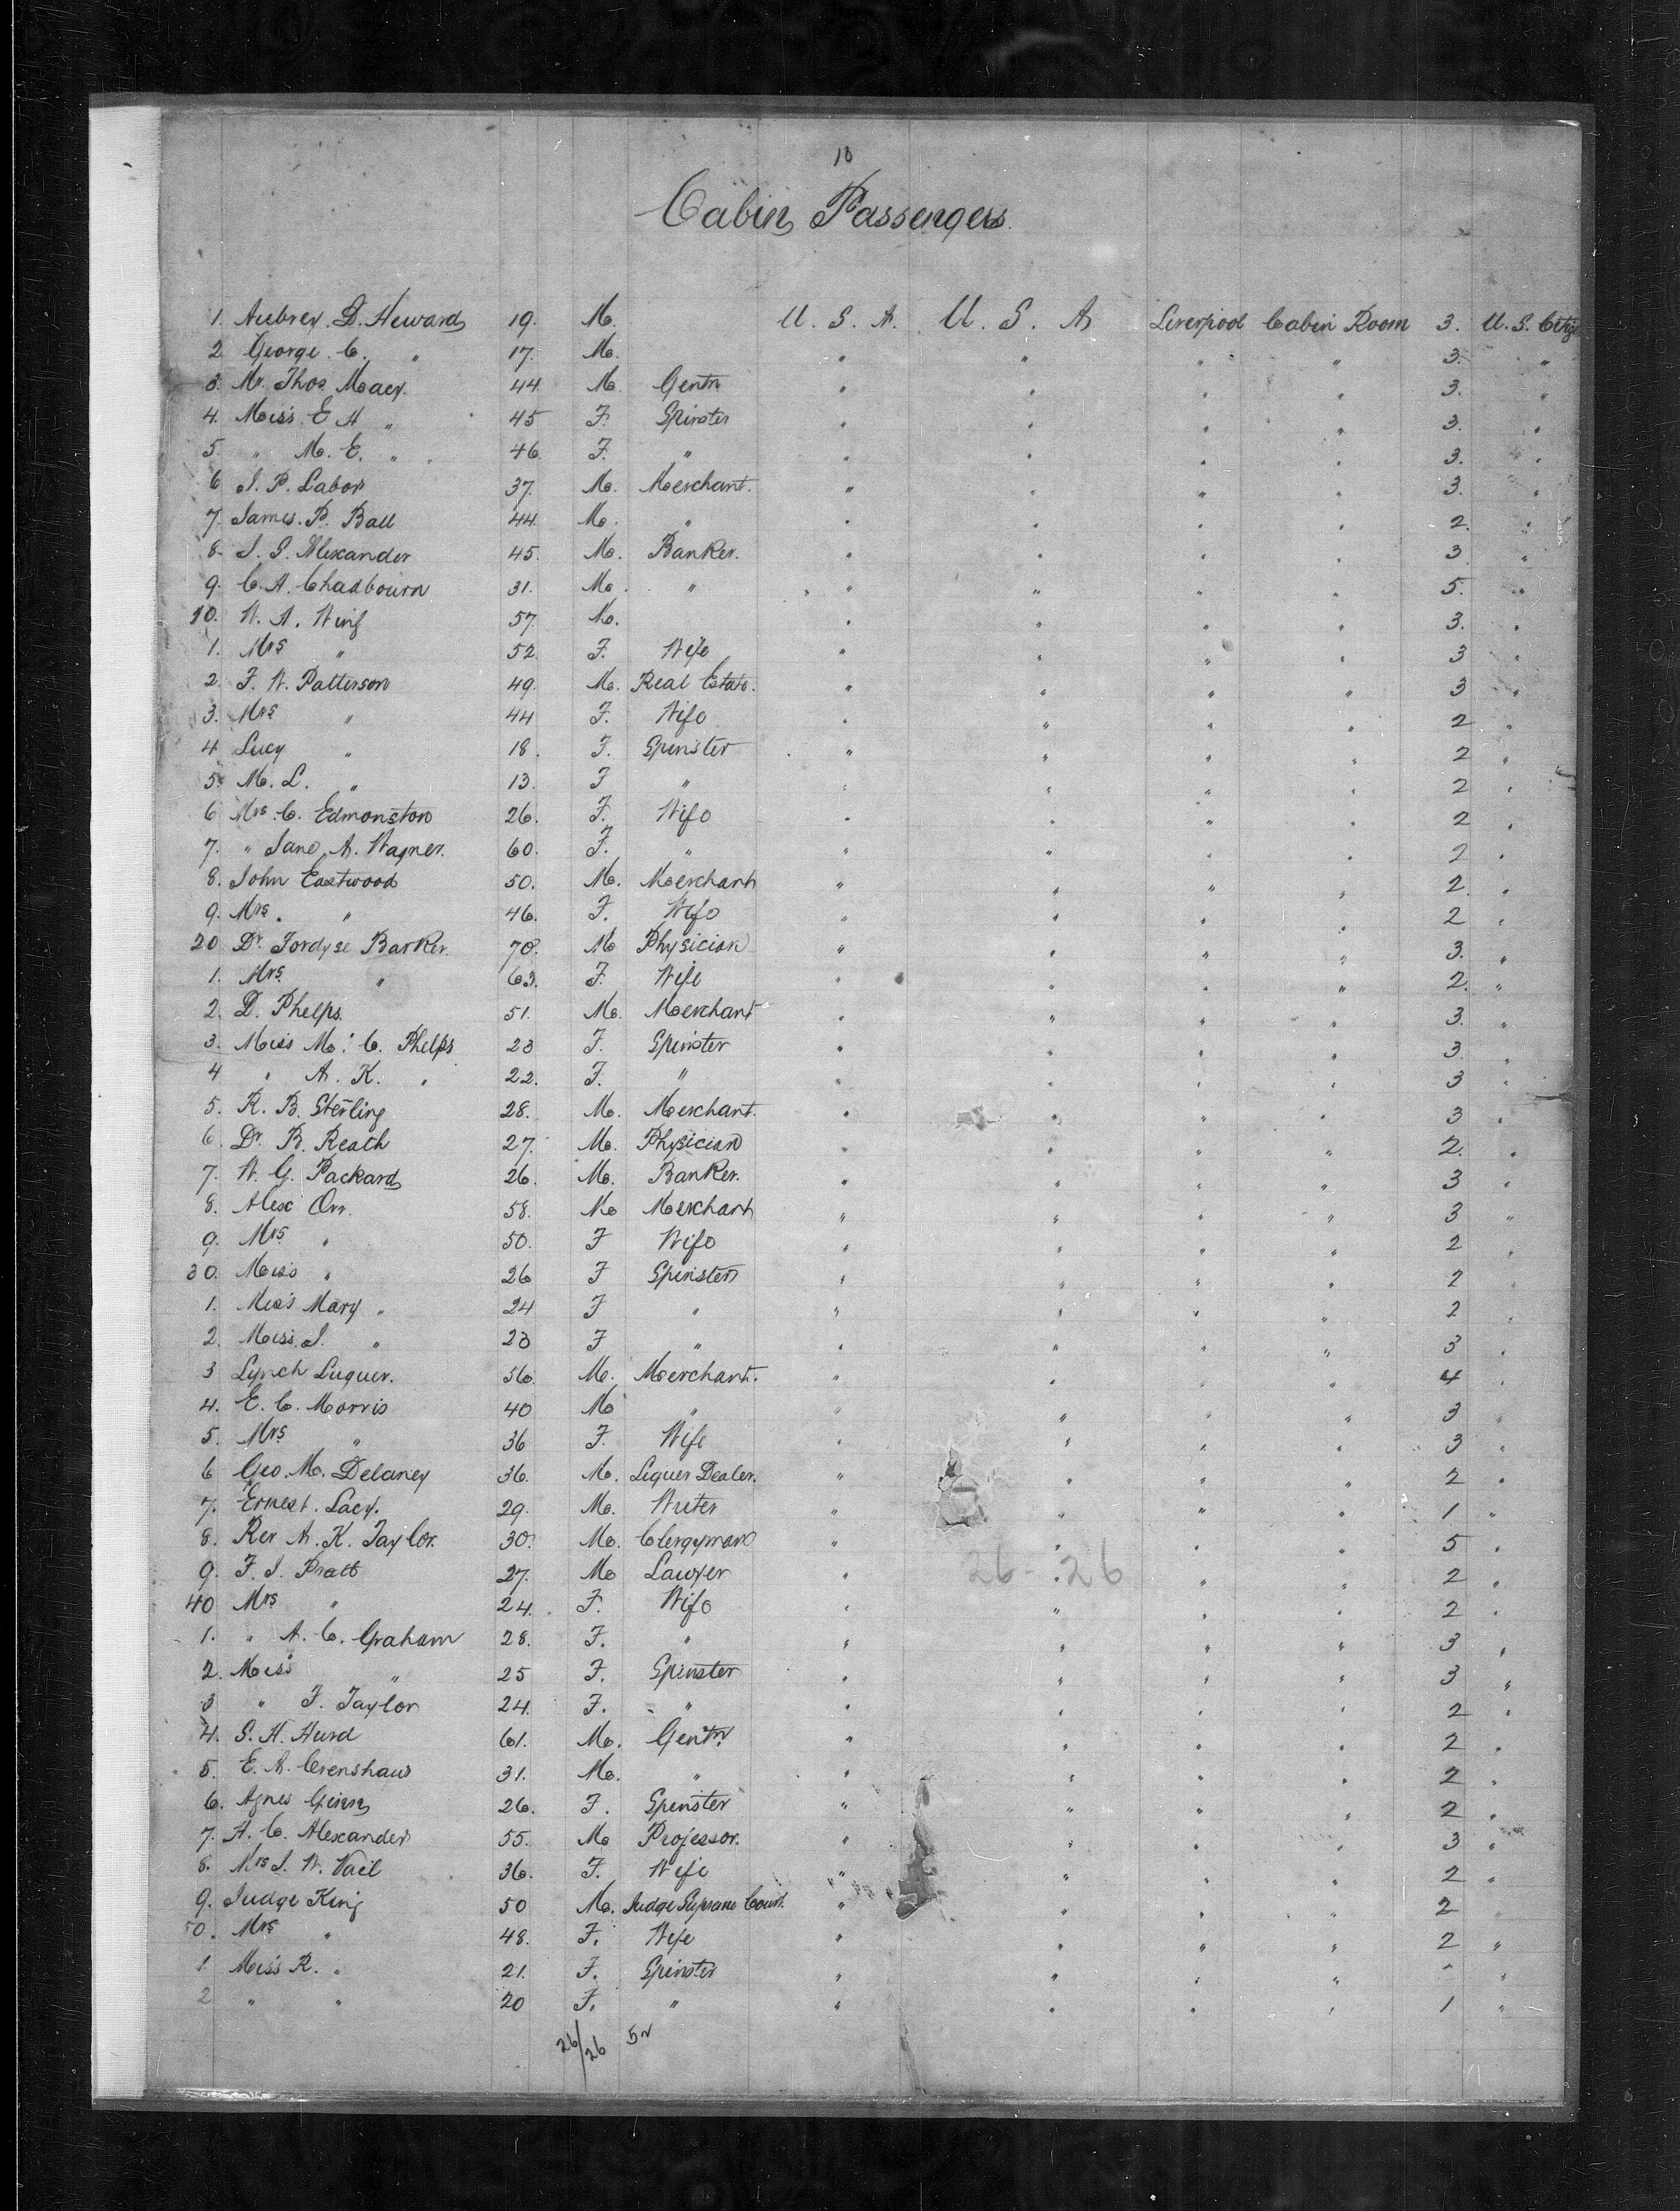 10
Cabin Passengers
1. Aubrey. D. Heward 19. M. U. S. A. U. S. A Liverpool Cabin Room 3. U. S. Citzn
2 George. C. " 17. M. " " " " 3. "
3. Mr. Thos. Macy. 44. M. Gentn " " " " 3. "
4. Miss. E H " 45 F. Spinster " " " " 3. "
5. " M. E. " 46. F. " " " " " 3. "
6 J. P. Labor 37. M. Merchant. " " " " 3. "
7. James. P. Ball 44. M. " " " " " 2. "
8. J. G. Alexander 45. M. Banker. " " " " 3 "
9. C. A. Chadbourn 31. M. " " " " " 5. "
10. W. A. Wing 57. M. " " " " 3. "
1. Mrs " 52. F. Wife " " " " 3 "
2. F. W. Patterson 49. M. Real Estate. " " " " 3 "
3. Mrs " 44 F. Wife " " " " 2 "
4 Lucy " 18. F. Spinster " " " " 2 "
5. M. L. " 13. F " " " " " 2 "
6 Mrs. C. Edmonston 26. F. Wife " " " " 2 "
7. " Jane, A. Wagner. 60. F. " " " " " 2 "
8. John Eastwood 50. M. Merchant " " " " 2. "
9. Mrs. " 46. F. Wife " " " " 2 "
20 Dr. Fordyse Barker. 70. M Physician " " " " 3. "
1. Mrs. " 63. F. Wife " " " " 2. "
2. D. Phelps. 51. M. Merchant " " " " 3. "
3. Miss M. C. Phelps 23 F. Spinster " " " " 3. "
4 " A. K. " 22. F. " " " " " 3 "
5. R. B. Sterling 28. M. Merchant. " " " " 3 "
6. Dr. B. Reath 27. M. Physician " " " " 2. "
7. W. G. Packard 26. M. Banker. " " " " 3 "
8. Alex Orr. 58. M Merchant " " " " 3 "
9. Mrs " 50. F Wife " " " " 2 "
30. Miss " 26 F Spinster " " " " 2 "
1. Miss Mary " 24 F " " " " " 2 "
2. Miss. J. " 23 F " " " " " 3 "
3 Lynch Luquer. 56. M. Merchant. " " " " 4 "
4. E. C. Morris 40 M " " " " " 3 "
5. Mrs " 36 F. Wife " " " " 3 "
6 Geo. M. Delaney 36. M. Liquer Dealer. " " " " 2 "
7. Ernest. Lacy. 29. M. Writer " " " " 1 "
8. Rev A. K. Taylor. 30. M. Clergyman " " " " 5 "
9. F. J. Pratt 27. M Lawyer " 26 - " 26 " " 2 "
40 Mrs " 24. F. Wife " " " " 2 "
1. " A. C. Graham 28. F. " " " " " 3 "
2. Miss " 25 F. Spinster " " " " 3 "
3 " F. Taylor 24. F. " " " " " 2 "
4. S. H. Hurd 61. M. Gentn " " " " 2 "
5. E. A. Crenshaw 31. M. " " " " " 2 "
6. Agnes Ginn 26. F. Spinster " " " " 2 "
7. A. C. Alexander 55. M Professor. " " " " 3 "
8. Mrs J. W. Vail 36. F. Wife " " " " 2 "
9. Judge King 50 M. Judge Supreme Court. " " " " 2 "
50. Mrs " 48. F. Wife " " " " 2 "
1 Miss R. " 21. F. Spinster " " " " - "
2 " " 20 F. " " " " " 1 "
26/26 52